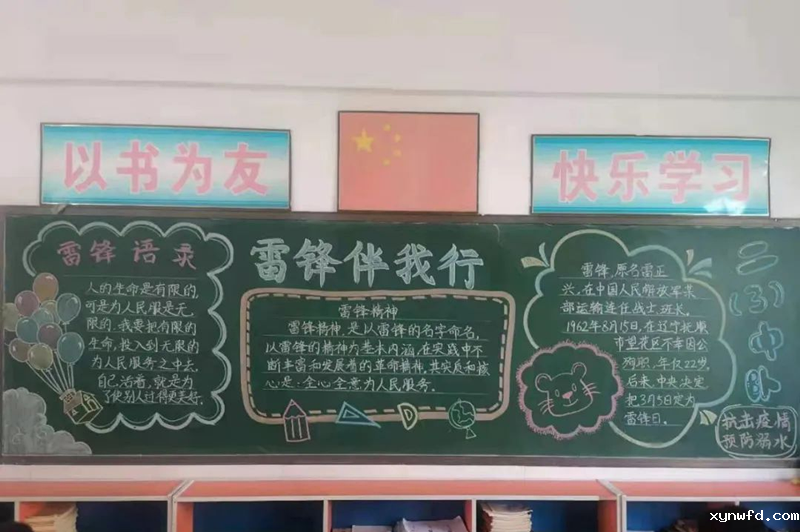 以书为友
快乐学习
雷锋语录
人的生命是有限的,
可是为人民服是无
限的,我要把有限的
生命,投入到无限的
为人民服务之中去,
自己活着,就是为
了使别人过得更美好.
雷锋伴我行
雷锋精神
雷锋精神,是以雷锋的名字命名,
以雷锋的精神为基本内涵,在实践中不
断丰富和发展着的革命精神,其实质和核
心是:全心全意为人民服务.
雷锋,原名雷正
兴,在中国人民解放军某
部运输连任战士班长.
1962年8月15日,在辽宁抚顺
市望花区不幸因公
殉职,年仅22岁,
后来,中央决定
把3月5日定为
雷锋日。
二
(3)
中
队
抗击疫情
预防溺水
xynwfd.com